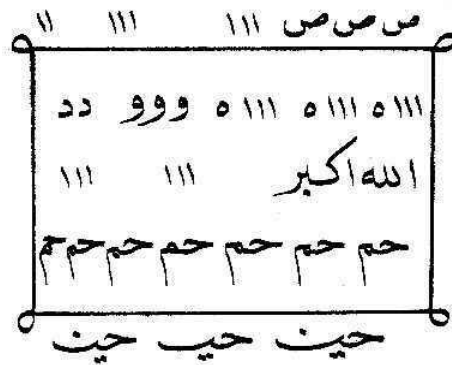 ص ص ص ١١١ ١١١ ١١
١١١ ه ١١١ ه ١١١ ه و و و د د
الله اكبر ١١١ ١١١
حم حم حم حم حم حم حم